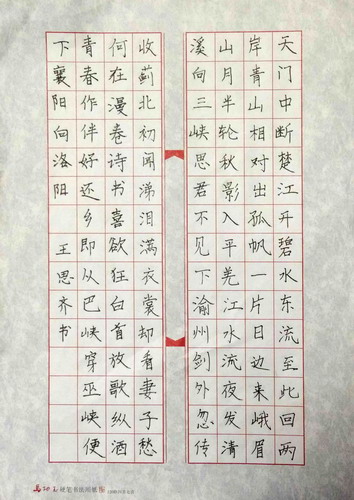 天门中断楚江开碧水东流至此回两
岸青山相对出孤帆一片日边来峨眉
山月半轮秋影入平羌江水流夜发清
溪向三峡思君不见下渝州剑外忽传
收蓟北初闻涕泪满衣裳却看妻子愁
何在漫卷诗书喜欲狂白首放歌纵酒
青春作伴好还乡即从巴峡穿巫峡便
下襄阳向洛阳 王思齐书
硬笔书法用纸